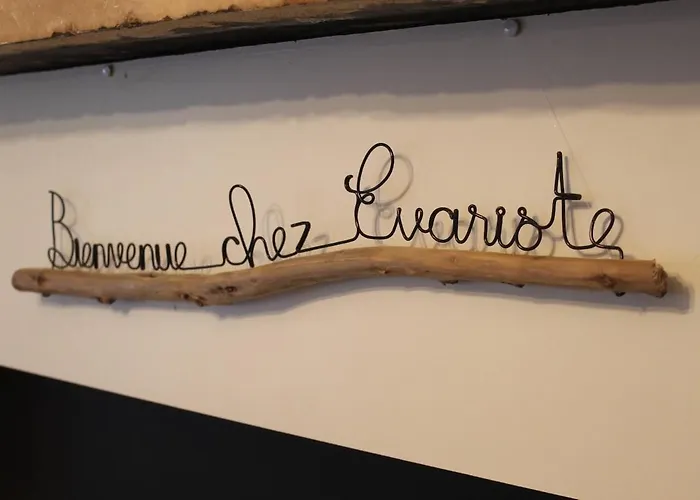 Bienvenue chez Evariste